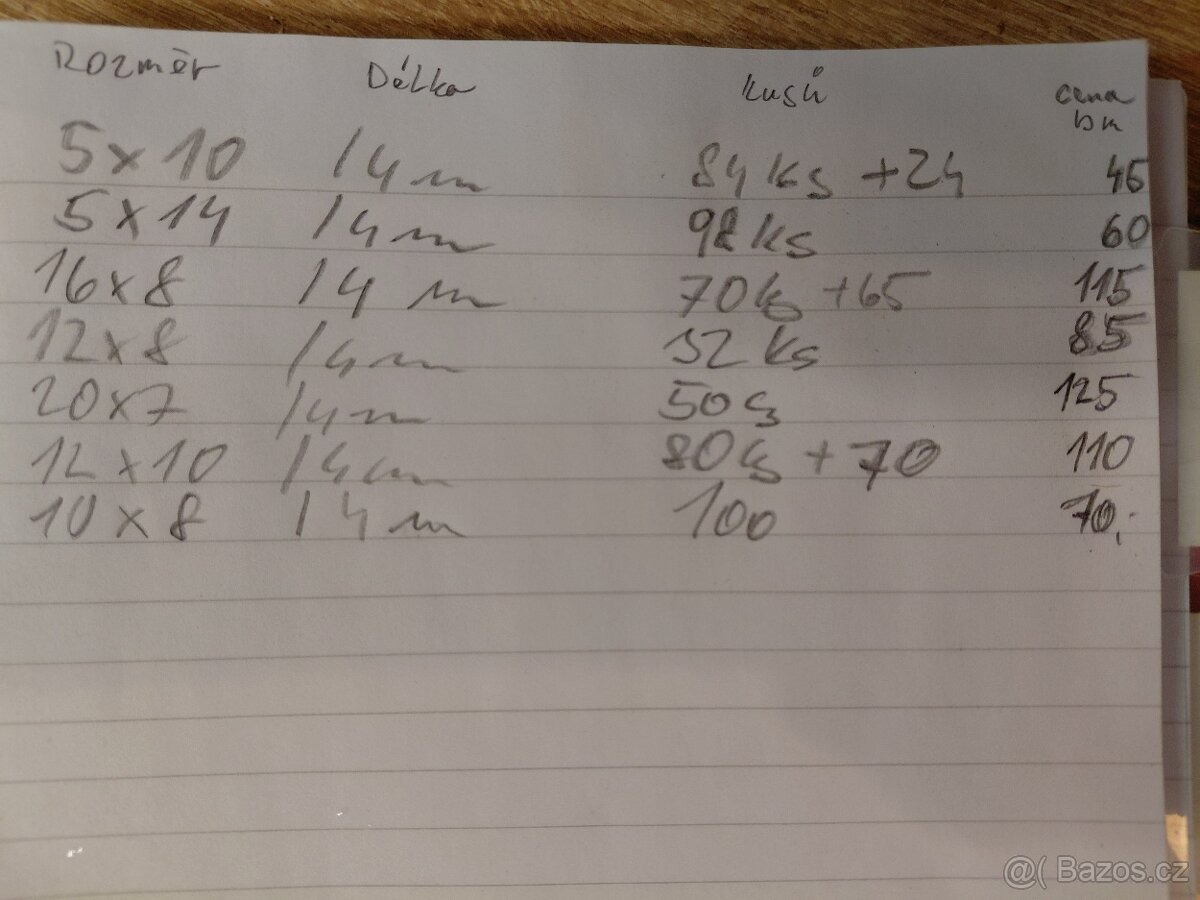 Rozměr Délka Kusů cena bm
5x10 14m 84ks +24 45
5x14 14m 98ks 60
16x8 14m 70ks +65 115
12x8 14m 32ks 85
20x7 14m 50ks 125
12x10 14m 80ks +70 110
10x8 14m 100 70,-
@( Bazos.cz